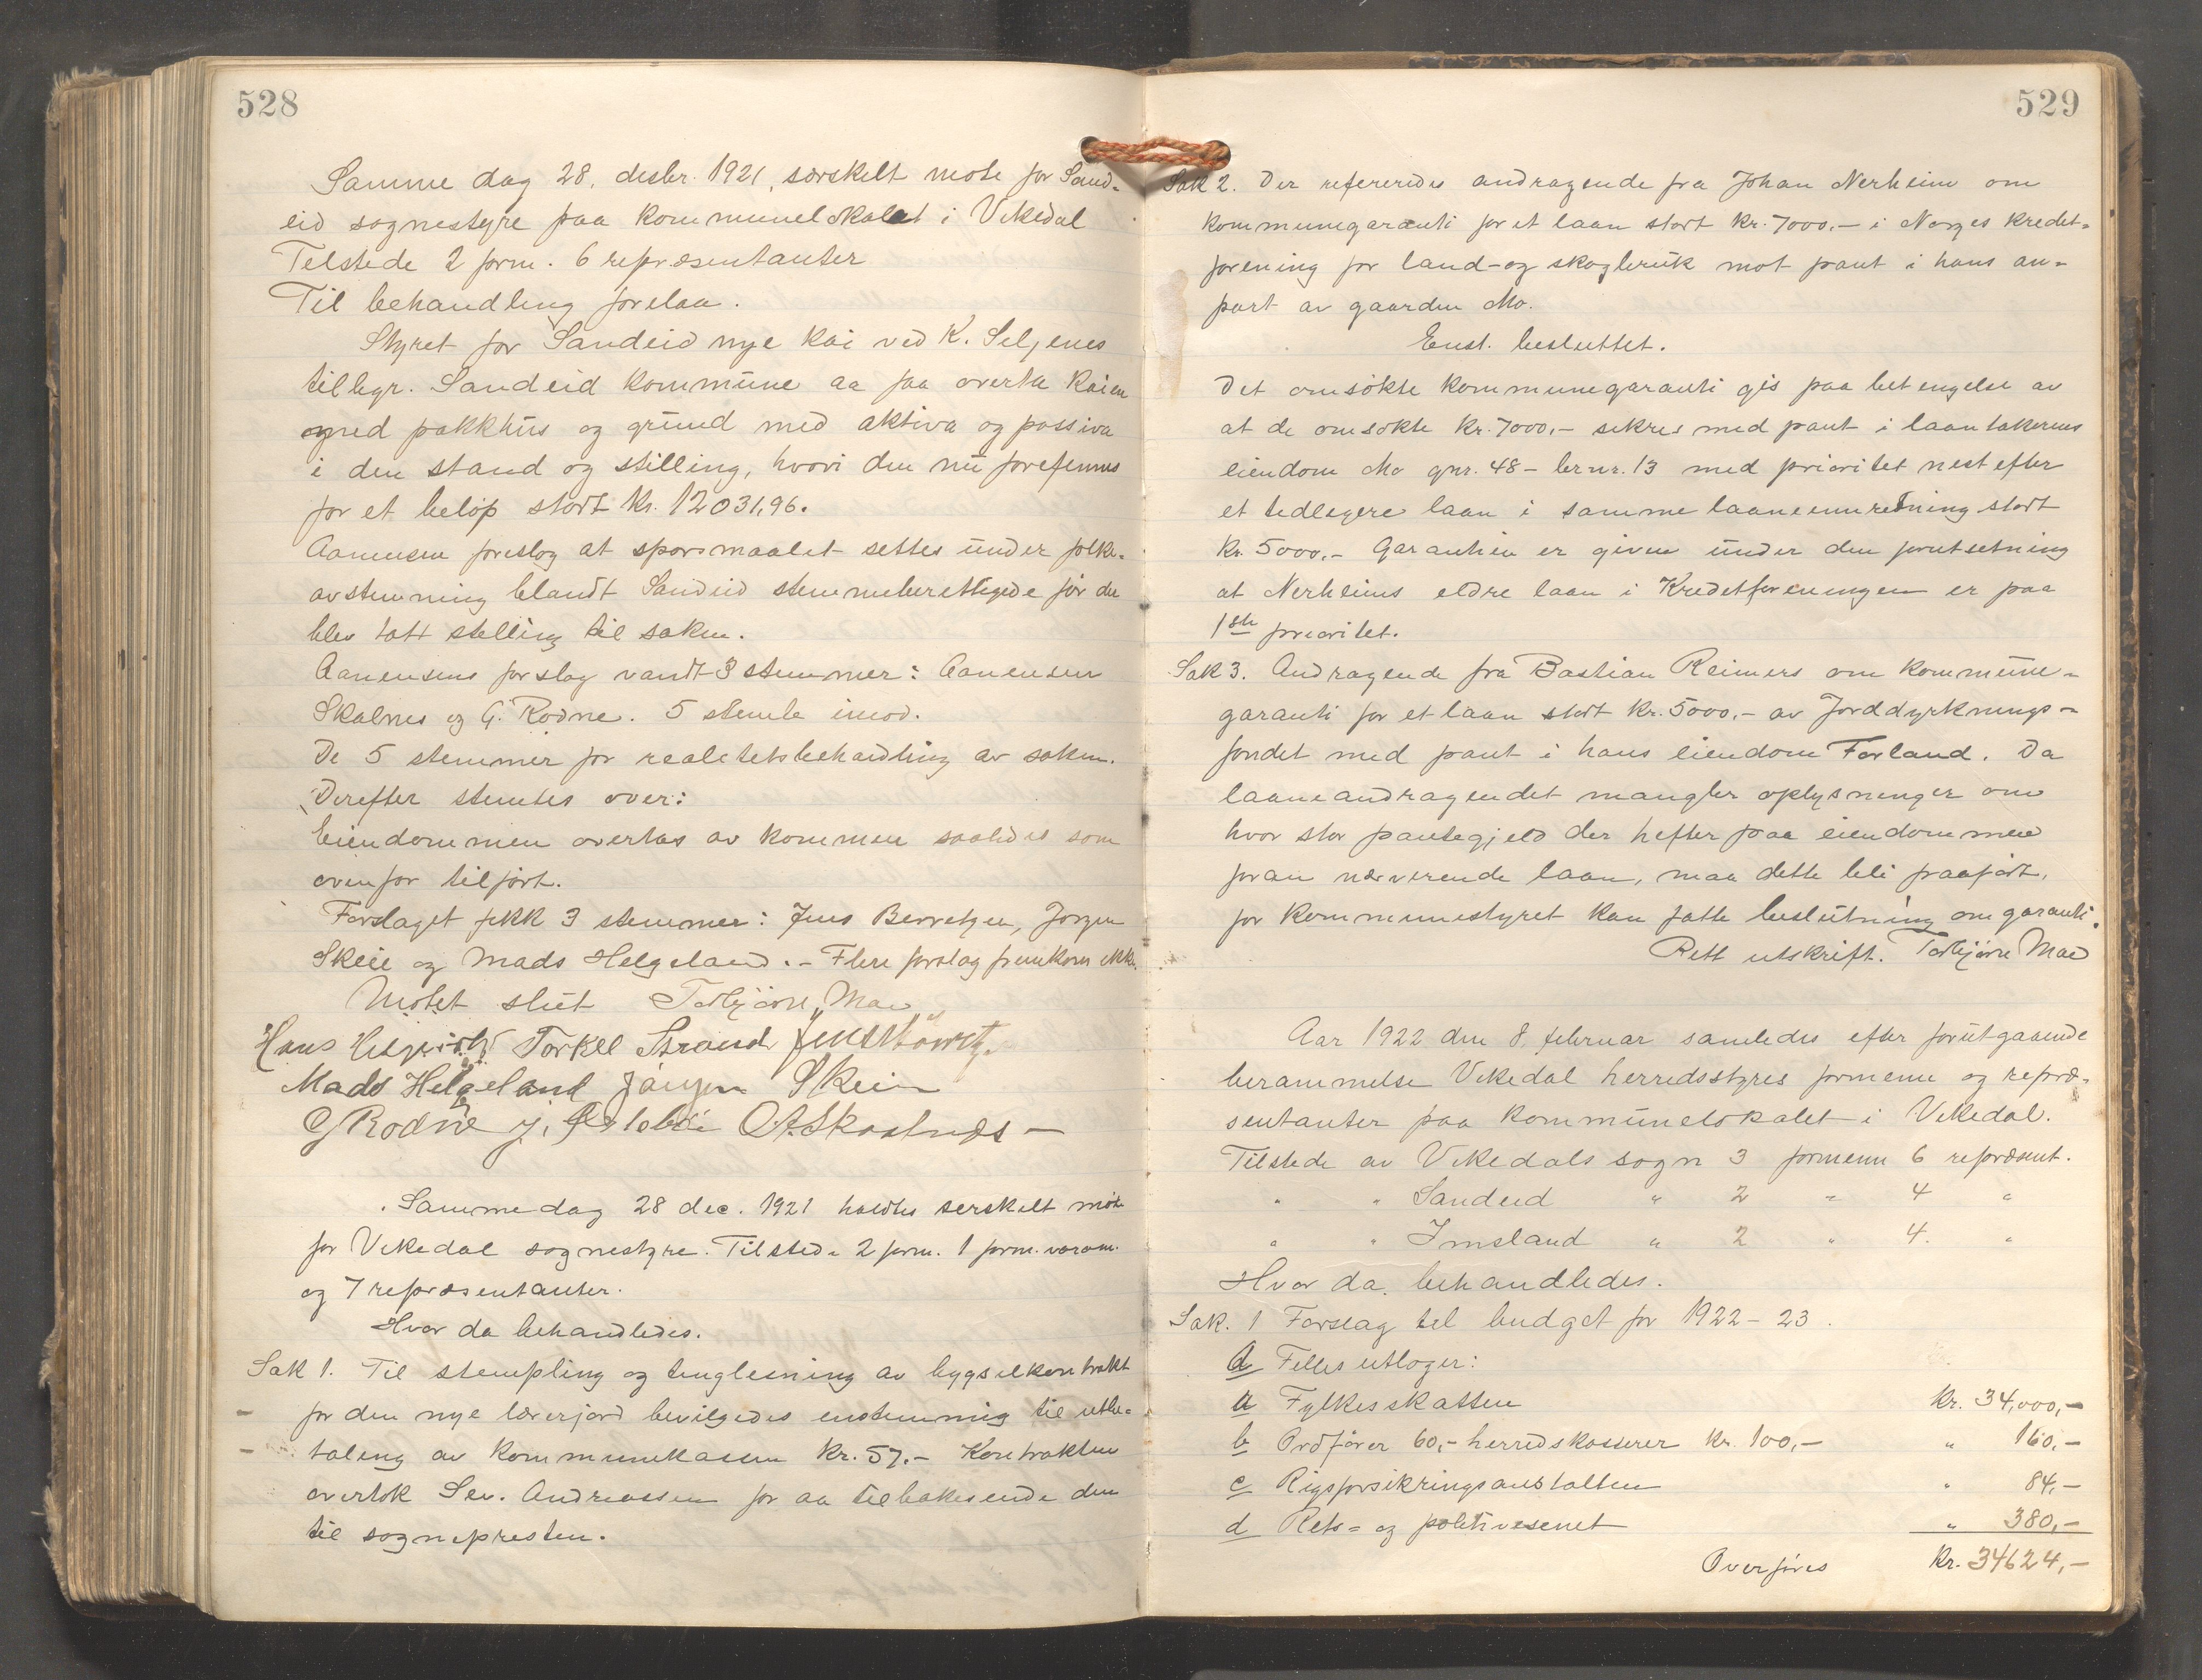 528
Samme dag 28. desbr. 1921, særskelt møte for Sand-
eid sognestyre paa kommunelokalet i Vikedal
Telstede 2 form. 6 repræsentanter
Til behandling forelaa.
Styret for Sandeid nye kai ved K. Seljenes
tilbyr. Sandeid kommune aa faa overta kaien
med pakkhus og grund med aktiva og passiva
i den stand og stilling, hvori den nu forefinnes
for et beløp stort kr. 12031,96.
Aanensen foreslog at spørsmaalet settes under folke-
avstemning blandt Sandeid stemmeberettigede før der
blev tatt stelling til saken.
Aanensens forslag vandt 3 stemmer: Aanensen
Skalnes og G. Rødne. 5 stemte imod.
De 5 stemmer for realitetsbehandling av saken.
Derefter stemtes over:
Eiendommen overtas av kommen saaledes som
ovenfor tilført.
Forslaget fekk 3 stemmer: Jens Berretzen, Jørgen
Skeie og Mads Helgeland. - Flere forslag fremkom ikke.
Møtet slut Torbjørn Moe
Hans Torkel Strand
Mads Helgeland Jørgen Skeie
G Rødne
Samme dag 28 dec. 1921 holdtes serskelt møte
for Vikedal sognestyre. Tilstede 2 form. 1 form. varam.
og 7 repræsentanter.
Hvor da behandledes.
Sak 1. Til stempling og tinglesning av bygselkontrakt
for den nye lærerjord bevilgedes enstemmig til utbe-
taling av kommunekassen kr. 57.- Kontrakten
overtok Sev. Andreassen for aa tilbakesende den
til sognepresten.
529
Sak 2. Der refereredes andragende fra Johan Nerheim om
kommunegaranti for et laan stort kr. 7000.- i Norges kredet-
forening for land- og skogbruk mot pant i hans an-
part av gaarden Mo.
Enst. besluttet.
Det omsøkte kommunegaranti gis paa betengelse av
at de omsøkte kr. 7000,- sekres med pant i laantakerens
eiendom Mo gnr. 48 - brnr. 13 med prioritet nest efter
et tedlegere laan i samme laaneinnretning stort
kr. 5000.- Garantien er given under den forutsetning
at Nerheims eldre laan i Kredetforeningen er paa
1ste prioritet.
Sak 3. Andragende fra Bastian Reimers om kommune-
garanti for et laan stort kr. 5000.- av Jorddyrknings-
fondet med pant i hans eiendom Forland. Da
laaneandragendet mangler oplysninger om
hvor stor pantegjeld der hefter paa eiendommen
foran nærverende laan, maa dette bli paaført,
før kommunestyret kan fatte beslutning om garanti.
Rett utskrift. Torbjørn Moe
Aar 1922 den 8. februar samledes efter forutgaaende
berammelse Vikedal herredsstyres formenn og repræ-
sentanter paa kommunelokalet i Vikedal.
Tilstede av Vikedals sogn 3 formenn 6 represent.
" " Sandeid " 2 " 4 "
" " Imsland " 2 " 4. "
Hvor da behandledes.
Sak. 1 Forslag tel budget for 1922 - 23.
A Felles utlæger:
a Fylkesskatten kr. 34,000,-
b Ordfører 60,- herredskasserer kr. 100,- " 160,-
c Rigsforsikringsanstalten " 84,-
d Rets- og politivesenet " 380,-
Overføres kr. 34624,-